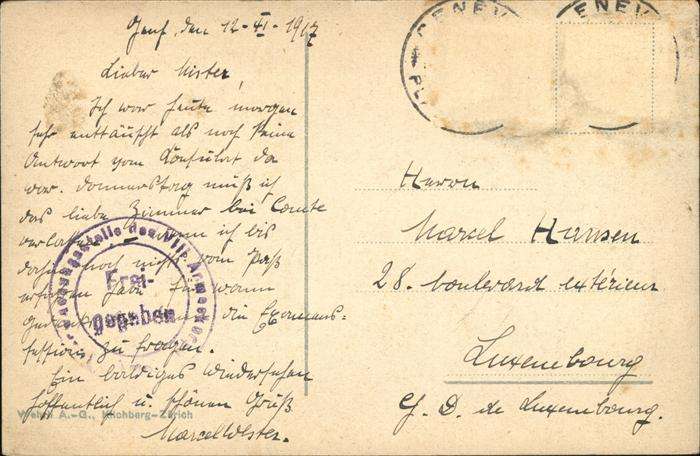 Genf, den 12-XI-1917
Lieber Mister,
Ich war heute morgen
sehr enttäuscht als noch keine
Antwort vom Consulat da
war. Donnerstag muß ich
das liebe Zimmer bei Comte
verlassen. Wenn ich bis
dahin noch nichts vom Paß
erfahren habe, für wann
die Examens=
session zu fragen.
Ein baldiges Wiedersehen
hoffentlich u. schönen Gruß
Marcel
Frei-
gegeben
Ueberwachungsstelle des VIII. Armeekorps
Wehrli A.-G., Kilchberg-Zürich
GENEV
PL
ENEV
Herrn
Marcel Hansen
28. boulevard extérieur
Luxembourg
G. D. de Luxembourg.